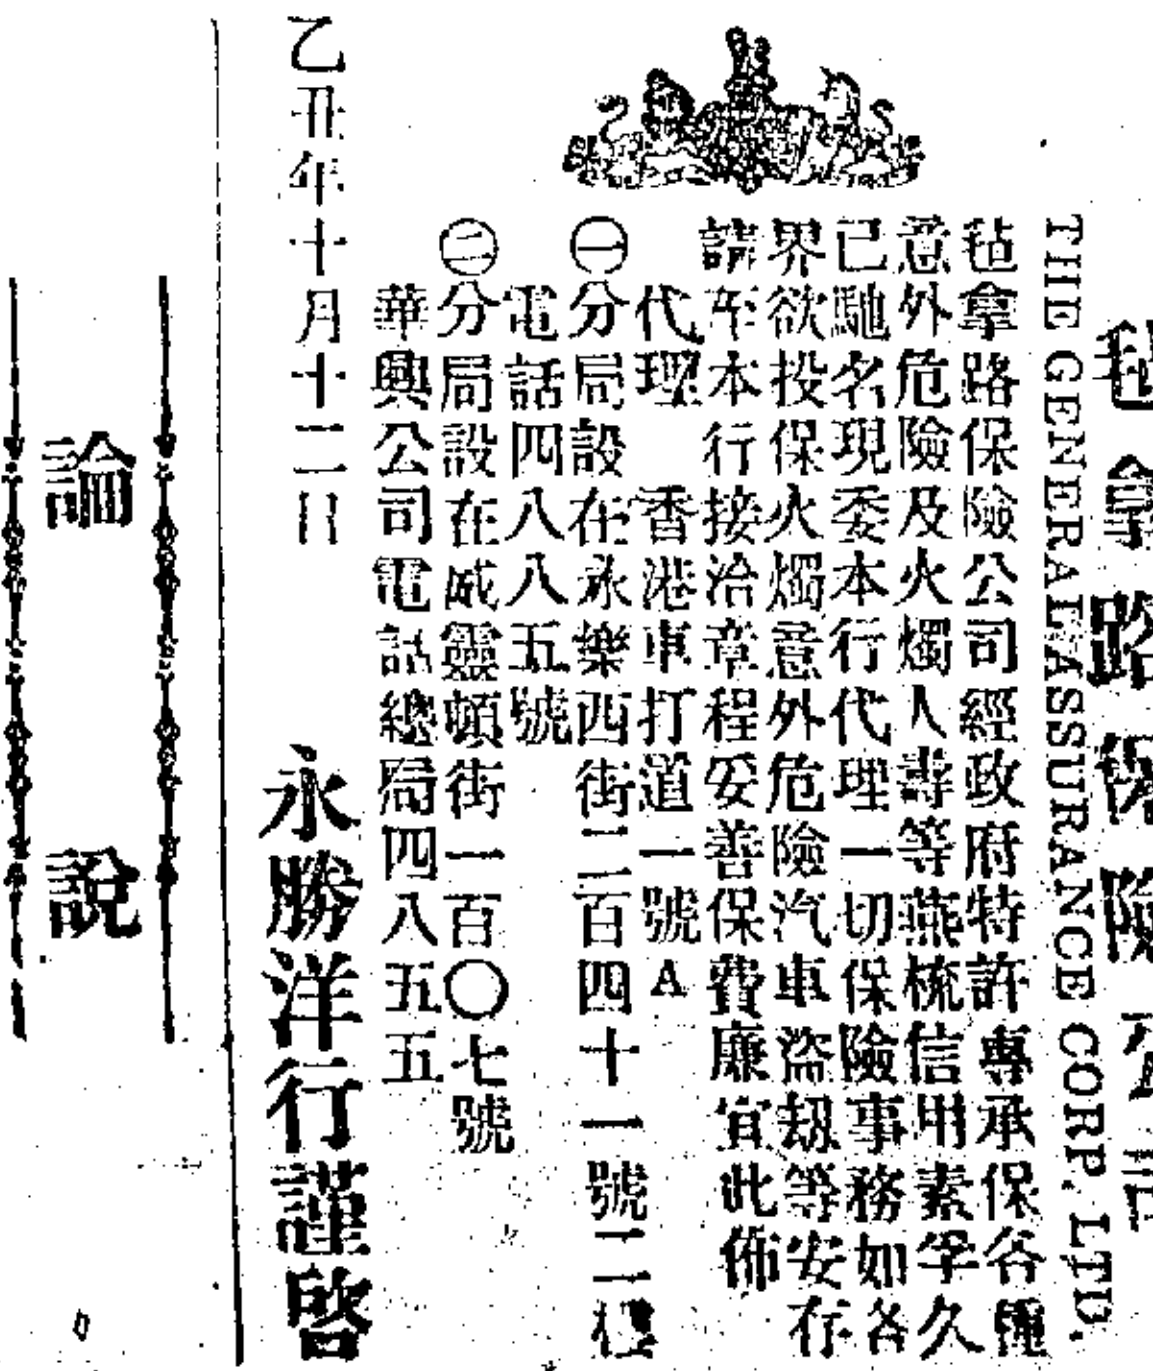 毡拿路保險公司
THE GENERAL ASSURANCE CORP. LTD.
毡拿路保險公司經政府特許專承保各種
意外危險及火燭人壽等燕梳信用素孚久
已馳名現委本行代理一切保險事務如各
界欲投保火燭意外危險汽車盜刼等安存
請至本行接洽章程妥善保費廉宜此佈
代理 香港車打道一號A
㊀分局設在永樂西街二百四十一號二樓
電話四八八五號
㊁分局設在威靈頓街一百〇七號
華興公司電話總局四八五五
乙丑年十月十二日
永勝洋行謹啓
論說